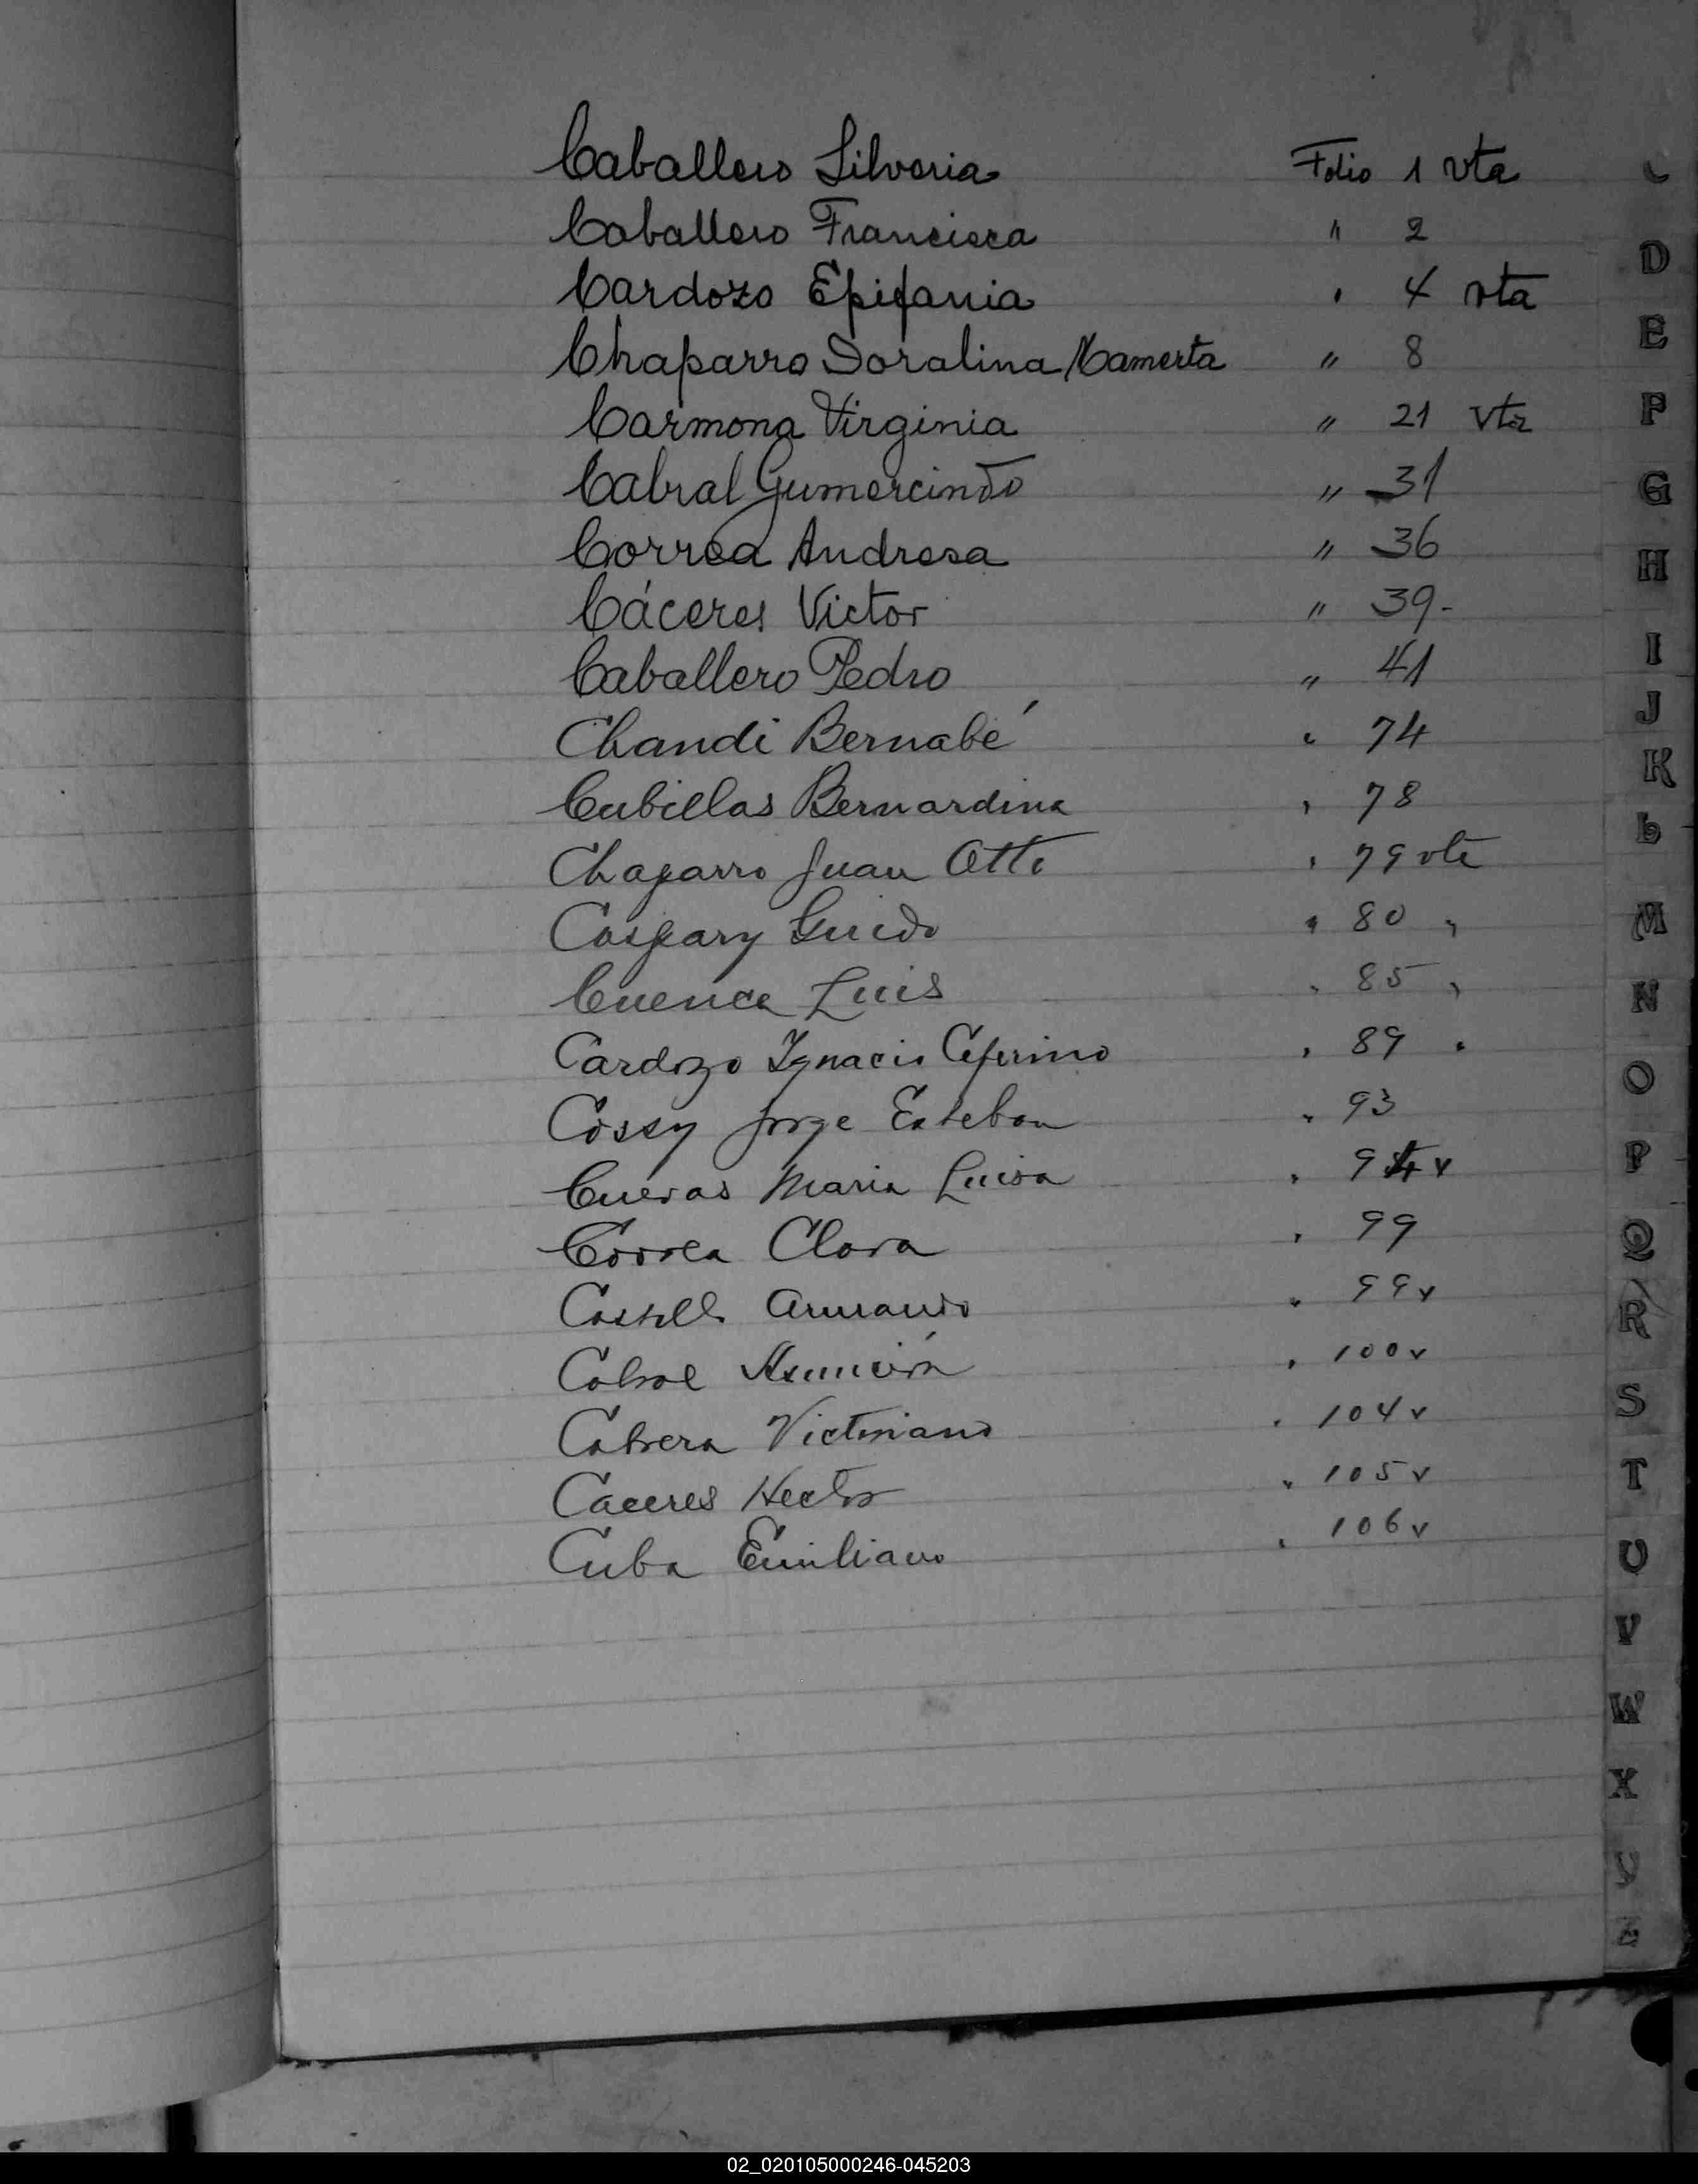 Caballero Silveria Folio 1 vta
Caballero Francisca " 2
Cardozo Epifania " 4 vta
Chaparro Doralina Mamerta " 8
Carmona Virginia " 21 vta
Cabral Gumercindo " 31
Correa Andresa " 36
Cáceres Victor " 39-
Caballero Pedro " 41
Chandi Bernabé " 74
Cubillas Bernardina " 78
Chaparro Juan Otto " 79 vta
Caspary Guido " 80 "
Cuenca Luis " 85 "
Cardozo Ignacio Ceferino " 89 "
Cossy Jorge Esteban " 93
Cuevas Maria Luisa " 94 v
Correa Clara " 99
Castell Armando " 99 v
Cabral Asunción " 100 v
Cabrera Victoriano " 104 v
Caceres Hector " 105 v
Cuba Emiliano " 106 v
C
D
E
F
G
H
I
J
K
L
M
N
O
P
Q
R
S
T
U
V
W
X
Y
Z
02_020105000246-045203